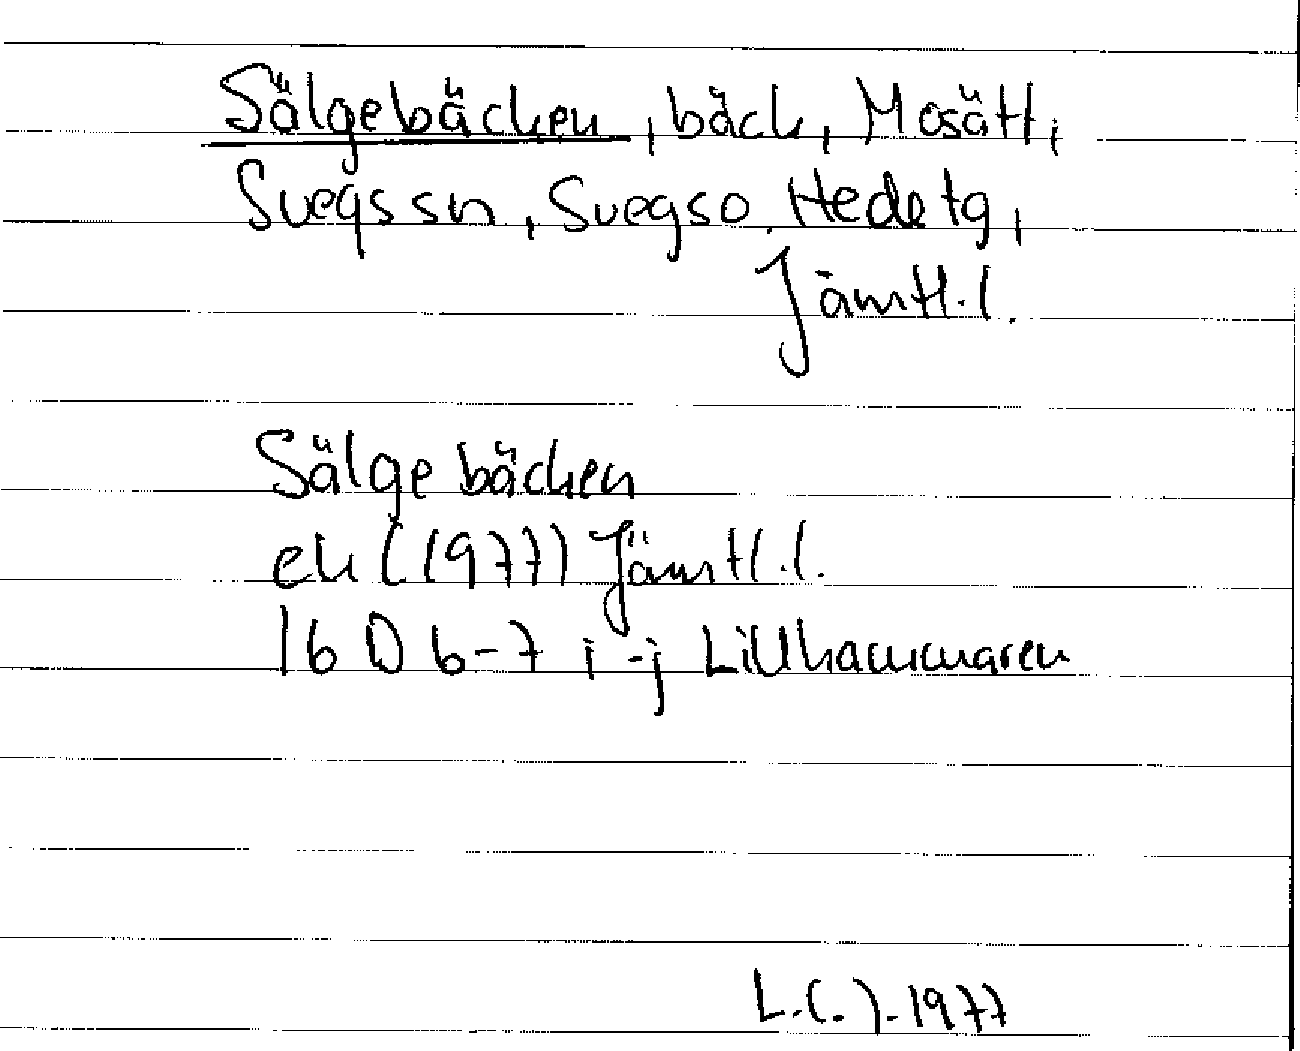 Sälgebäcken, bäck, Mosätt,
Svegs sn, Svegs o. Hede tg,
Jämtl.l.
Sälgebäcken
ek (1977) Jämtl.l.
16 D 6-7 i-j Lillhammaren
L.(.).1977